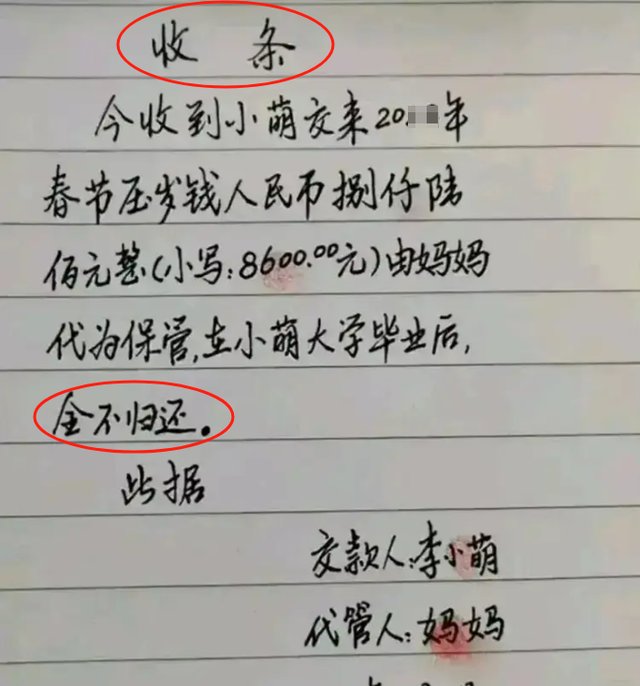 收 条
今收到小萌交来20 年
春节压岁钱人民币捌仟陆
佰元整(小写:8600.00元)由妈妈
代为保管,在小萌大学毕业后,
全不归还。
此据
交款人:李小萌
代管人:妈妈